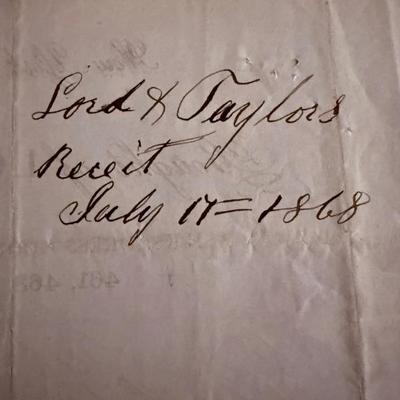 Lord & Taylors
Receit
July 17= 1868